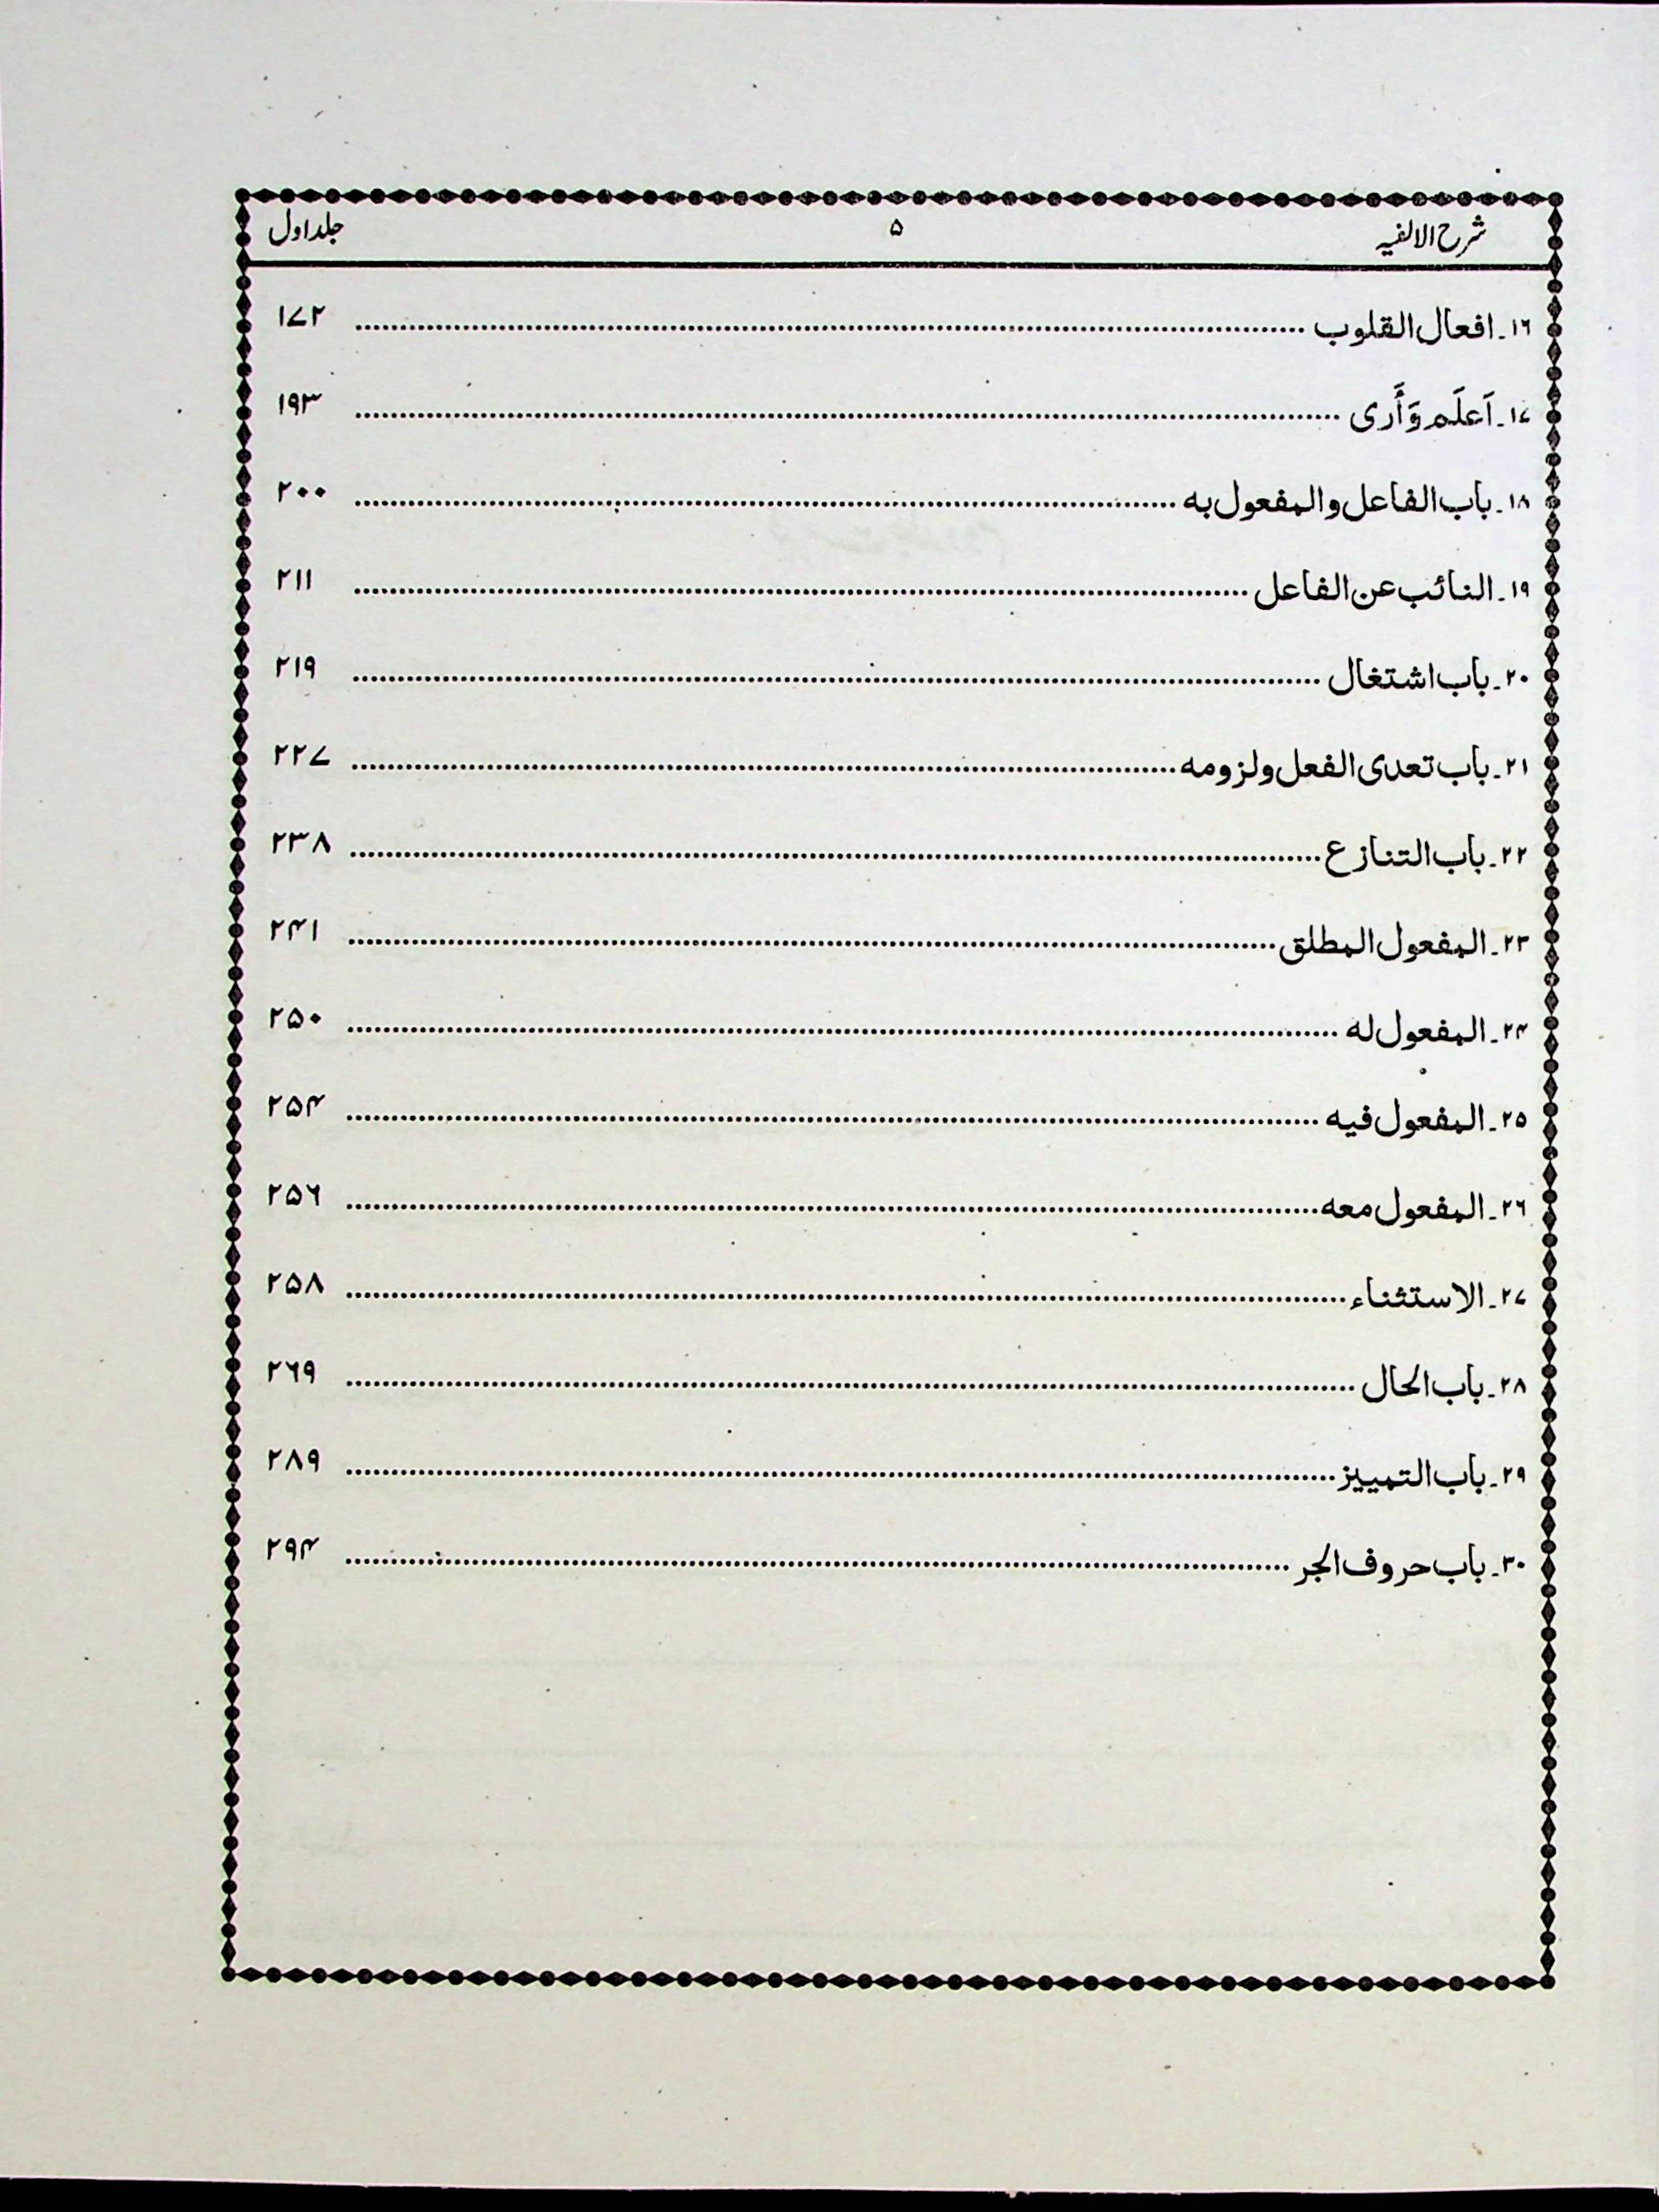 شرح الالفیہ ۵ جلد اول
۱۶۔ افعال القلوب ........ ۱۷۲
۱۷۔ اَعلَم وَأَرى ........ ۱۹۳
۱۸۔ باب الفاعل والمفعول به ........ ۲۰۰
۱۹۔ النائب عن الفاعل ........ ۲۱۱
۲۰۔ باب اشتغال ........ ۲۱۹
۲۱۔ باب تعدى الفعل ولزومه ........ ۲۲۷
۲۲۔ باب التنازع ........ ۲۳۸
۲۳۔ المفعول المطلق ........ ۲۴۱
۲۴۔ المفعول له ........ ۲۵۰
۲۵۔ المفعول فيه ........ ۲۵۴
۲۶۔ المفعول معه ........ ۲۵۶
۲۷۔ الاستثناء ........ ۲۵۸
۲۸۔ باب الحال ........ ۲۶۹
۲۹۔ باب التمييز ........ ۲۸۹
۳۰۔ باب حروف الجر ........ ۲۹۴